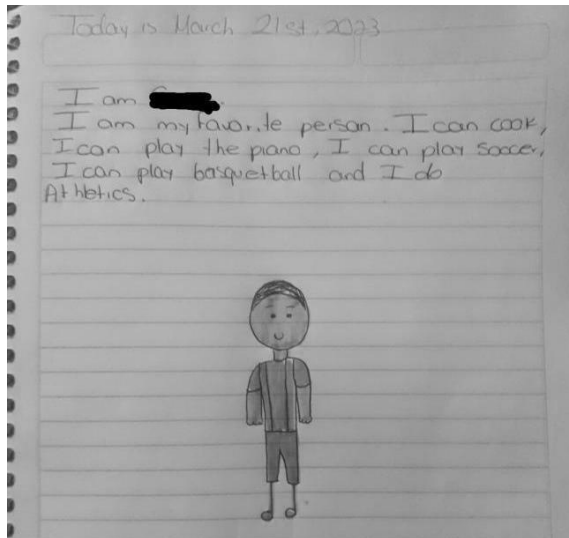 Today is March 21st, 2023
I am
I am my favorite person. I can cook,
I can play the piano, I can play soccer,
I can play basquetball and I do
Athletics.